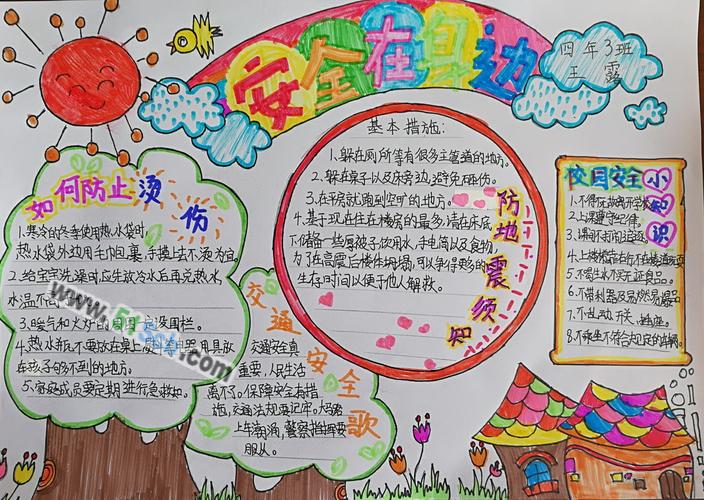 安全在身边
四年3班
王露
如何防止烫伤
1.寒冷的冬季使用热水袋时,
热水袋外边用毛巾包裹,手摸上去不烫为宜
2.给宝宝洗澡时应先放冷水后再兑热水,
水温不高
3.暖气和火炉的周围 定设围栏。
4.热水瓶不要放在桌上
在孩子够不到的地方。
5.家庭成员要定期进行急救
基本措施:
1.躲在厕所等有很多主管道的地方。
2.躲在桌子以及床旁边,避免压伤。
3.在平房就跑到空旷的地方。
4.基于现在住在楼房的最多,请在床底
下储备一些厚被子饮用水,手电筒以及食物,
为了在高震后楼体坍塌,可以争得更多的
生存时间以便于他人解救。
防地震须知
交通安全歌
交通安全真
重要,人民生活
离不了。保障安全有措
施,交通法规要记牢。大马路
上车辆 ,警察指挥要
服从。
校园安全小知识
1.不得无故离开学校
2.上课遵守纪律。
3.课间不打闹追逐。
4.上楼梯靠右行不在楼道
5.不喝生水不买 食品。
6.不带利器及易燃易爆品
7.不乱动开关、插座。
8.不乘坐不符合规定的车辆。